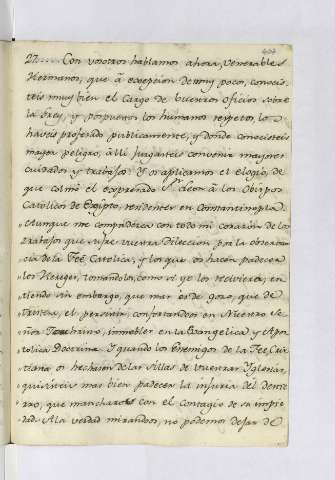 407
27.... Con vosotros hablamos ahora, Venerables
Hermanos, que à excepcion de muy pocos, conocis-
teis muy bien el cargo de vuestros oficios sobre
la Grey, y pospuestos los humanos respetos, lo
haveis profesado publicamente, y donde conocisteis
mayor peligro, alli juzgasteis convenir mayores
cuidados y trabajos. Y os aplicamos el elogio, de
que colmó el expresado Sn. Leon à los Obispos
Catolicos de Egipto, residentes en Constantinopla.
Aunque me compadezca con todo mi corazon de los
trabajos que sufre vuestra Dileccion por la observan-
cia de la Feé Catolica, y lo que os hacen padecer
los Hereges, tomandolos, como si yo los recibiera; en-
tiendo sin embargo, que mas es de gozo, que de
tristeza, el persistir, confortandoos en Nuestro Se-
ñor Jesuchristo, immobles en la Evangelica y Apos-
tolica Doctrina. Y quando los Enemigos de la Feé Cris-
tiana os hechasen de las Sillas de vuestras Yglesias,
quisisteis mas bien padecer la injuria del destie-
rro, que mancharos con el contagio de su impie-
dad. A la verdad mirandoos, no podemos dejar de